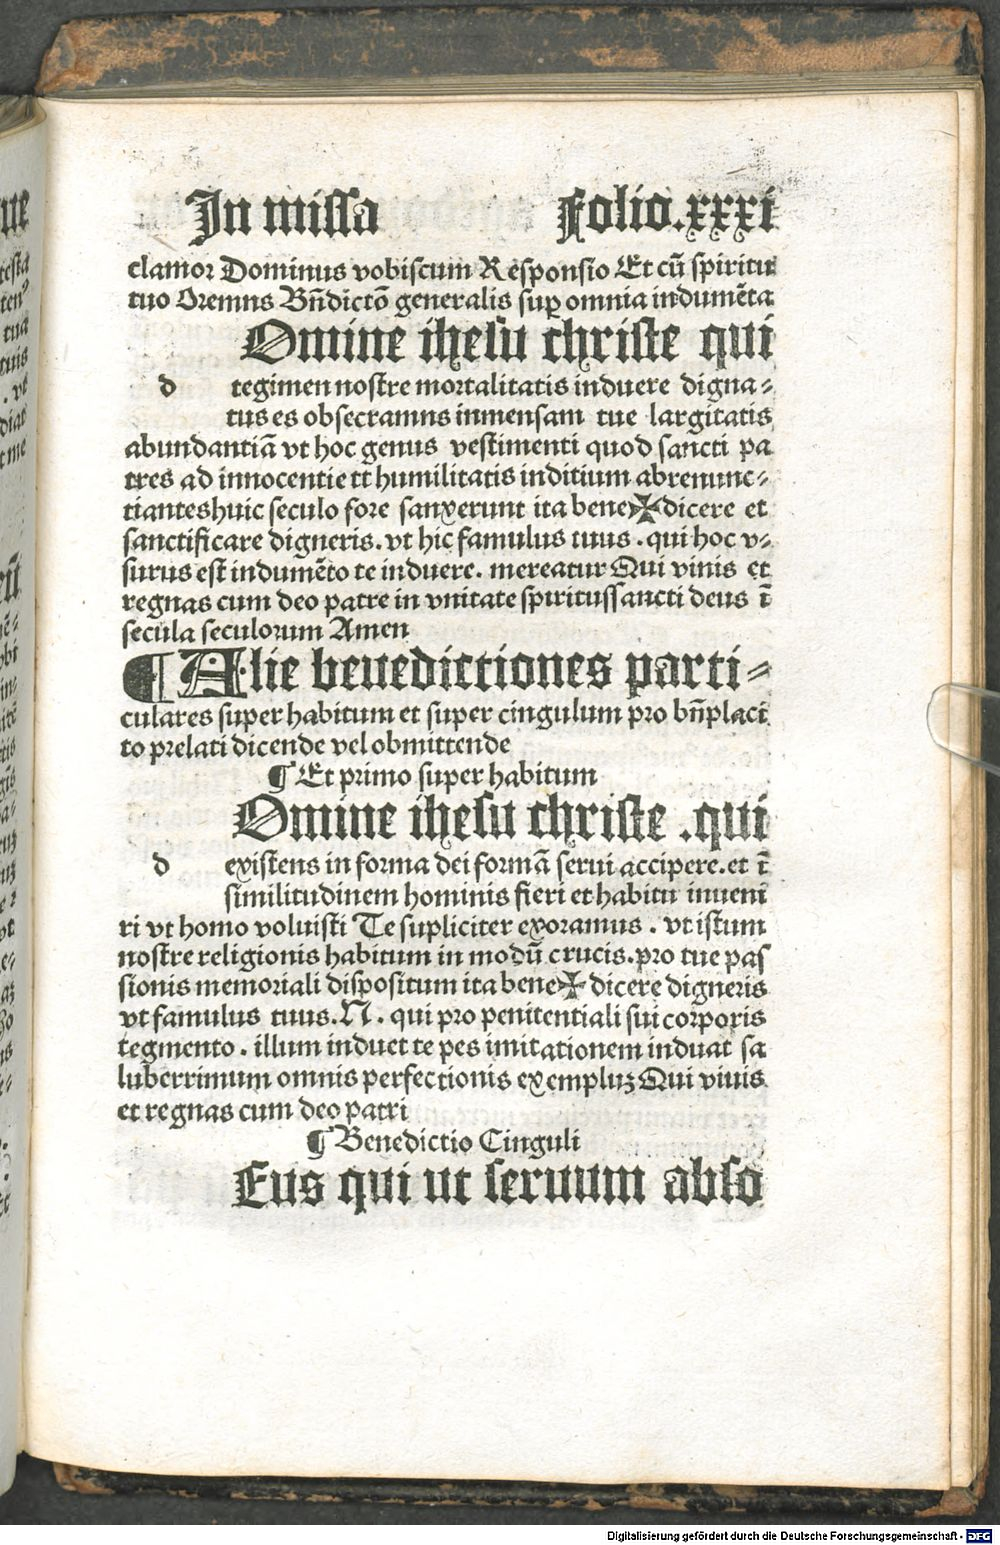 In missa Folio.xxxi
clamor Dominus vobiscum Responsio Et cū spiritu
tuo Oremns Bn̄dictō generalis suꝑ omnia indumēta
Omine ihesu christe qui
d tegimen nostre mortalitatis induere digna⸗
tus es obsecramns inmensam tue largitatis
abundantiā vt hoc genus vestimenti quod sancti pa
tres ad innocentie et humilitatis inditium abrenunc⸗
tianteshuic seculo fore sanxerunt ita bene✠dicere et
sanctificare digneris. vt hic famulus tuus . qui hoc v⸗
surus est indumēto te induere. mereatur Qui vinis et
regnas cum deo patre in vnitate spiritussancti deus ī
secula seculorum Amen
¶ Alie benedictiones parti⸗
culares super habitum et super cingulum pro bn̄placi
to prelati dicende vel obmittende
¶ Et primo super habitum
Omine ihesu christe .qui
d existens in forma dei formā serui accipere. et ī
similitudinem hominis fieri et habitu inueni
ri vt homo voluisti Te supliciter exoramus . vt istum
nostre religionis habitum in modū crucis. pro tue pas
sionis memoriali dispositum ita bene✠dicere digneris
vt famulus tuus. N. qui pro penitentiali sui corporis
tegmento . illum induet te pes imitationem induat sa
luberrimum omnis perfectionis exempluꝫ Qui viuis
et regnas cum deo patri
¶ Benedictio Cinguli
Eus qui ut seruum abso
ue
Digitalisierung gefördert durch die Deutsche Forschungsgemeinschaft - DFG